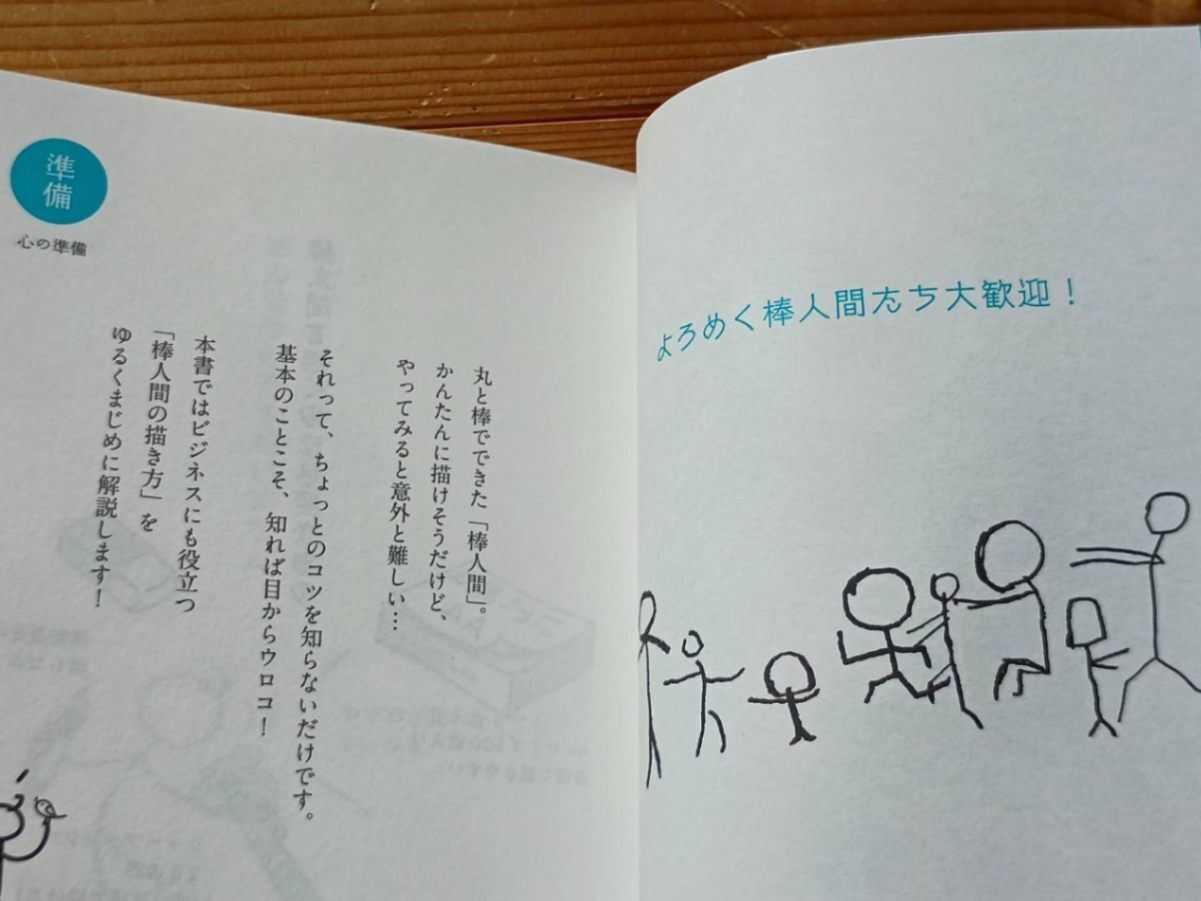 準備
心の準備
丸と棒でできた「棒人間」。
かんたんに描けそうだけど、
やってみると意外と難しい…
それって、ちょっとのコツを知らないだけです。
基本のことこそ、知れば目からウロコ！
本書ではビジネスにも役立つ
「棒人間の描き方」を
ゆるくまじめに解説します！
よろめく棒人間たち大歓迎！